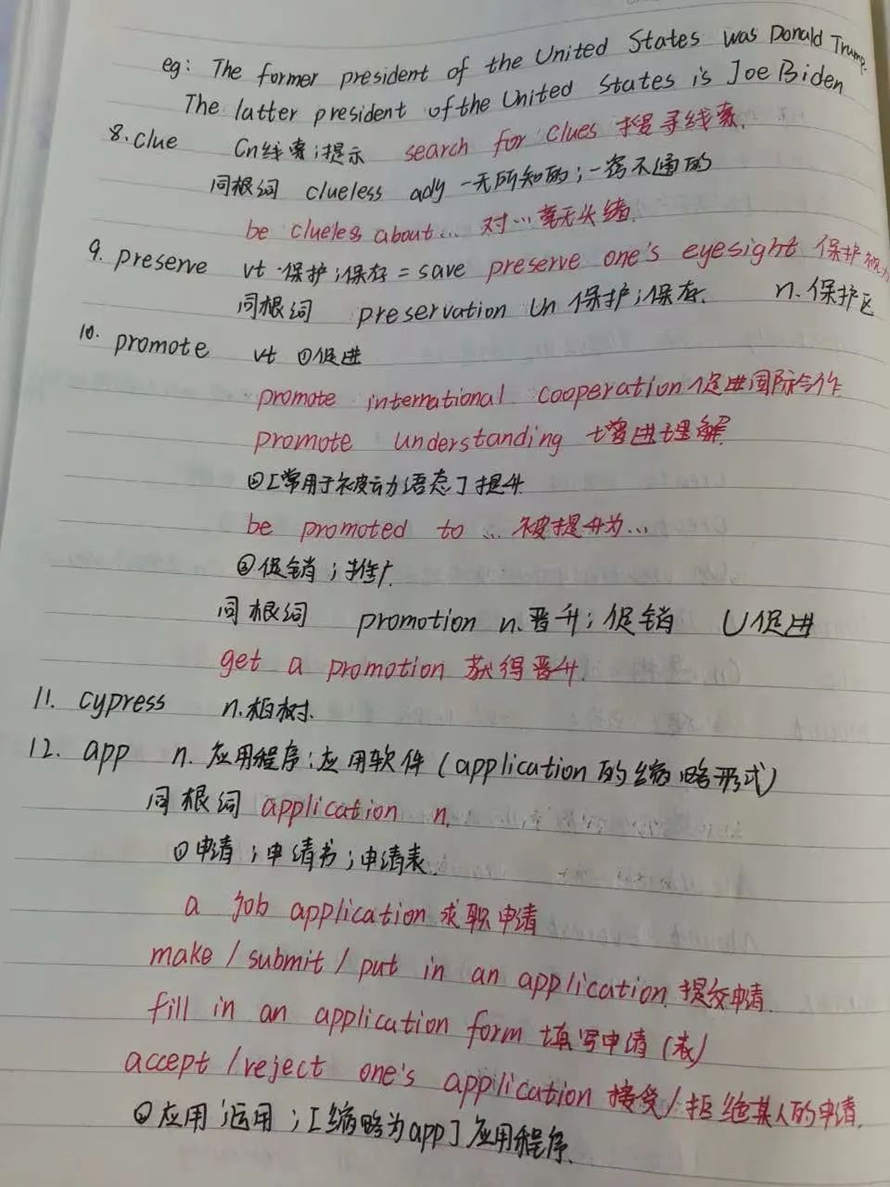 eg: The former president of the United States was Donald Trump.
The latter president of the United States is Joe Biden
8. clue Cn 线索;提示 search for clues 搜寻线索.
同根词 clueless adj 一无所知的;一窍不通的
be clueless about... 对…毫无头绪.
9. preserve vt.保护;保存=save preserve one's eyesight 保护视力
同根词 preservation Un 保护;保存. n.保护区
10. promote vt ①促进
promote international cooperation 促进国际合作
promote understanding 增进理解
②[常用于被动语态]提升
be promoted to ... 被提升为...
③促销;推广
同根词 promotion n.晋升;促销 U促进
get a promotion 获得晋升.
11. cypress n.柏树.
12. app n. 应用程序;应用软件(application的缩略形式)
同根词 application n.
①申请;申请书;申请表.
a job application 求职申请
make / submit / put in an application 提交申请.
fill in an application form 填写申请(表)
accept / reject one's application 接受/拒绝某人的申请.
②应用;运用;[缩略为app]应用程序.